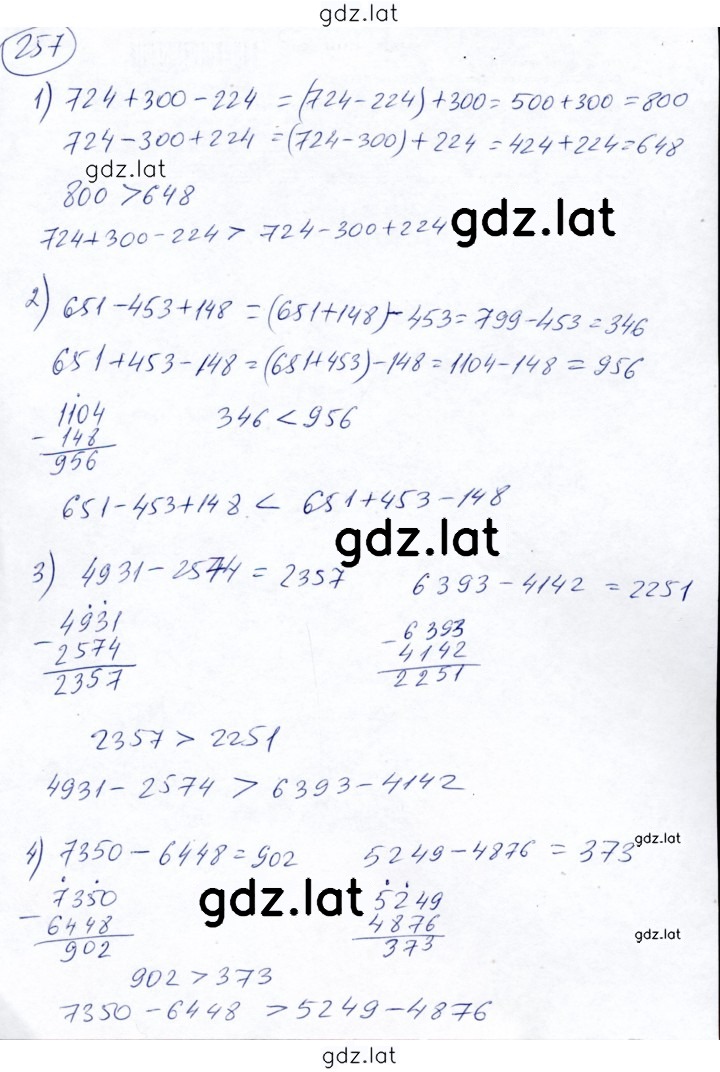 gdz.lat
257
1) 724+300-224 = (724-224)+300 = 500+300 = 800
724-300+224 = (724-300)+224 = 424+224 = 648
gdz.lat
800 > 648
724+300-224 > 724-300+224
gdz.lat
2) 651-453+148 = (651+148)-453 = 799-453 = 346
651+453-148 = (651+453)-148 = 1104-148 = 956
1104
- 148
956
346 < 956
651-453+148 < 651+453-148
gdz.lat
3) 4931-2574 = 2357 6393-4142 = 2251
4931 6393
- 2574 - 4142
2357 2251
2357 > 2251
4931-2574 > 6393-4142
4) 7350-6448 = 902 5249-4876 = 373
gdz.lat
7350 5249
- 6448 4876
902 373
gdz.lat
gdz.lat
902 > 373
7350-6448 > 5249-4876
gdz.lat